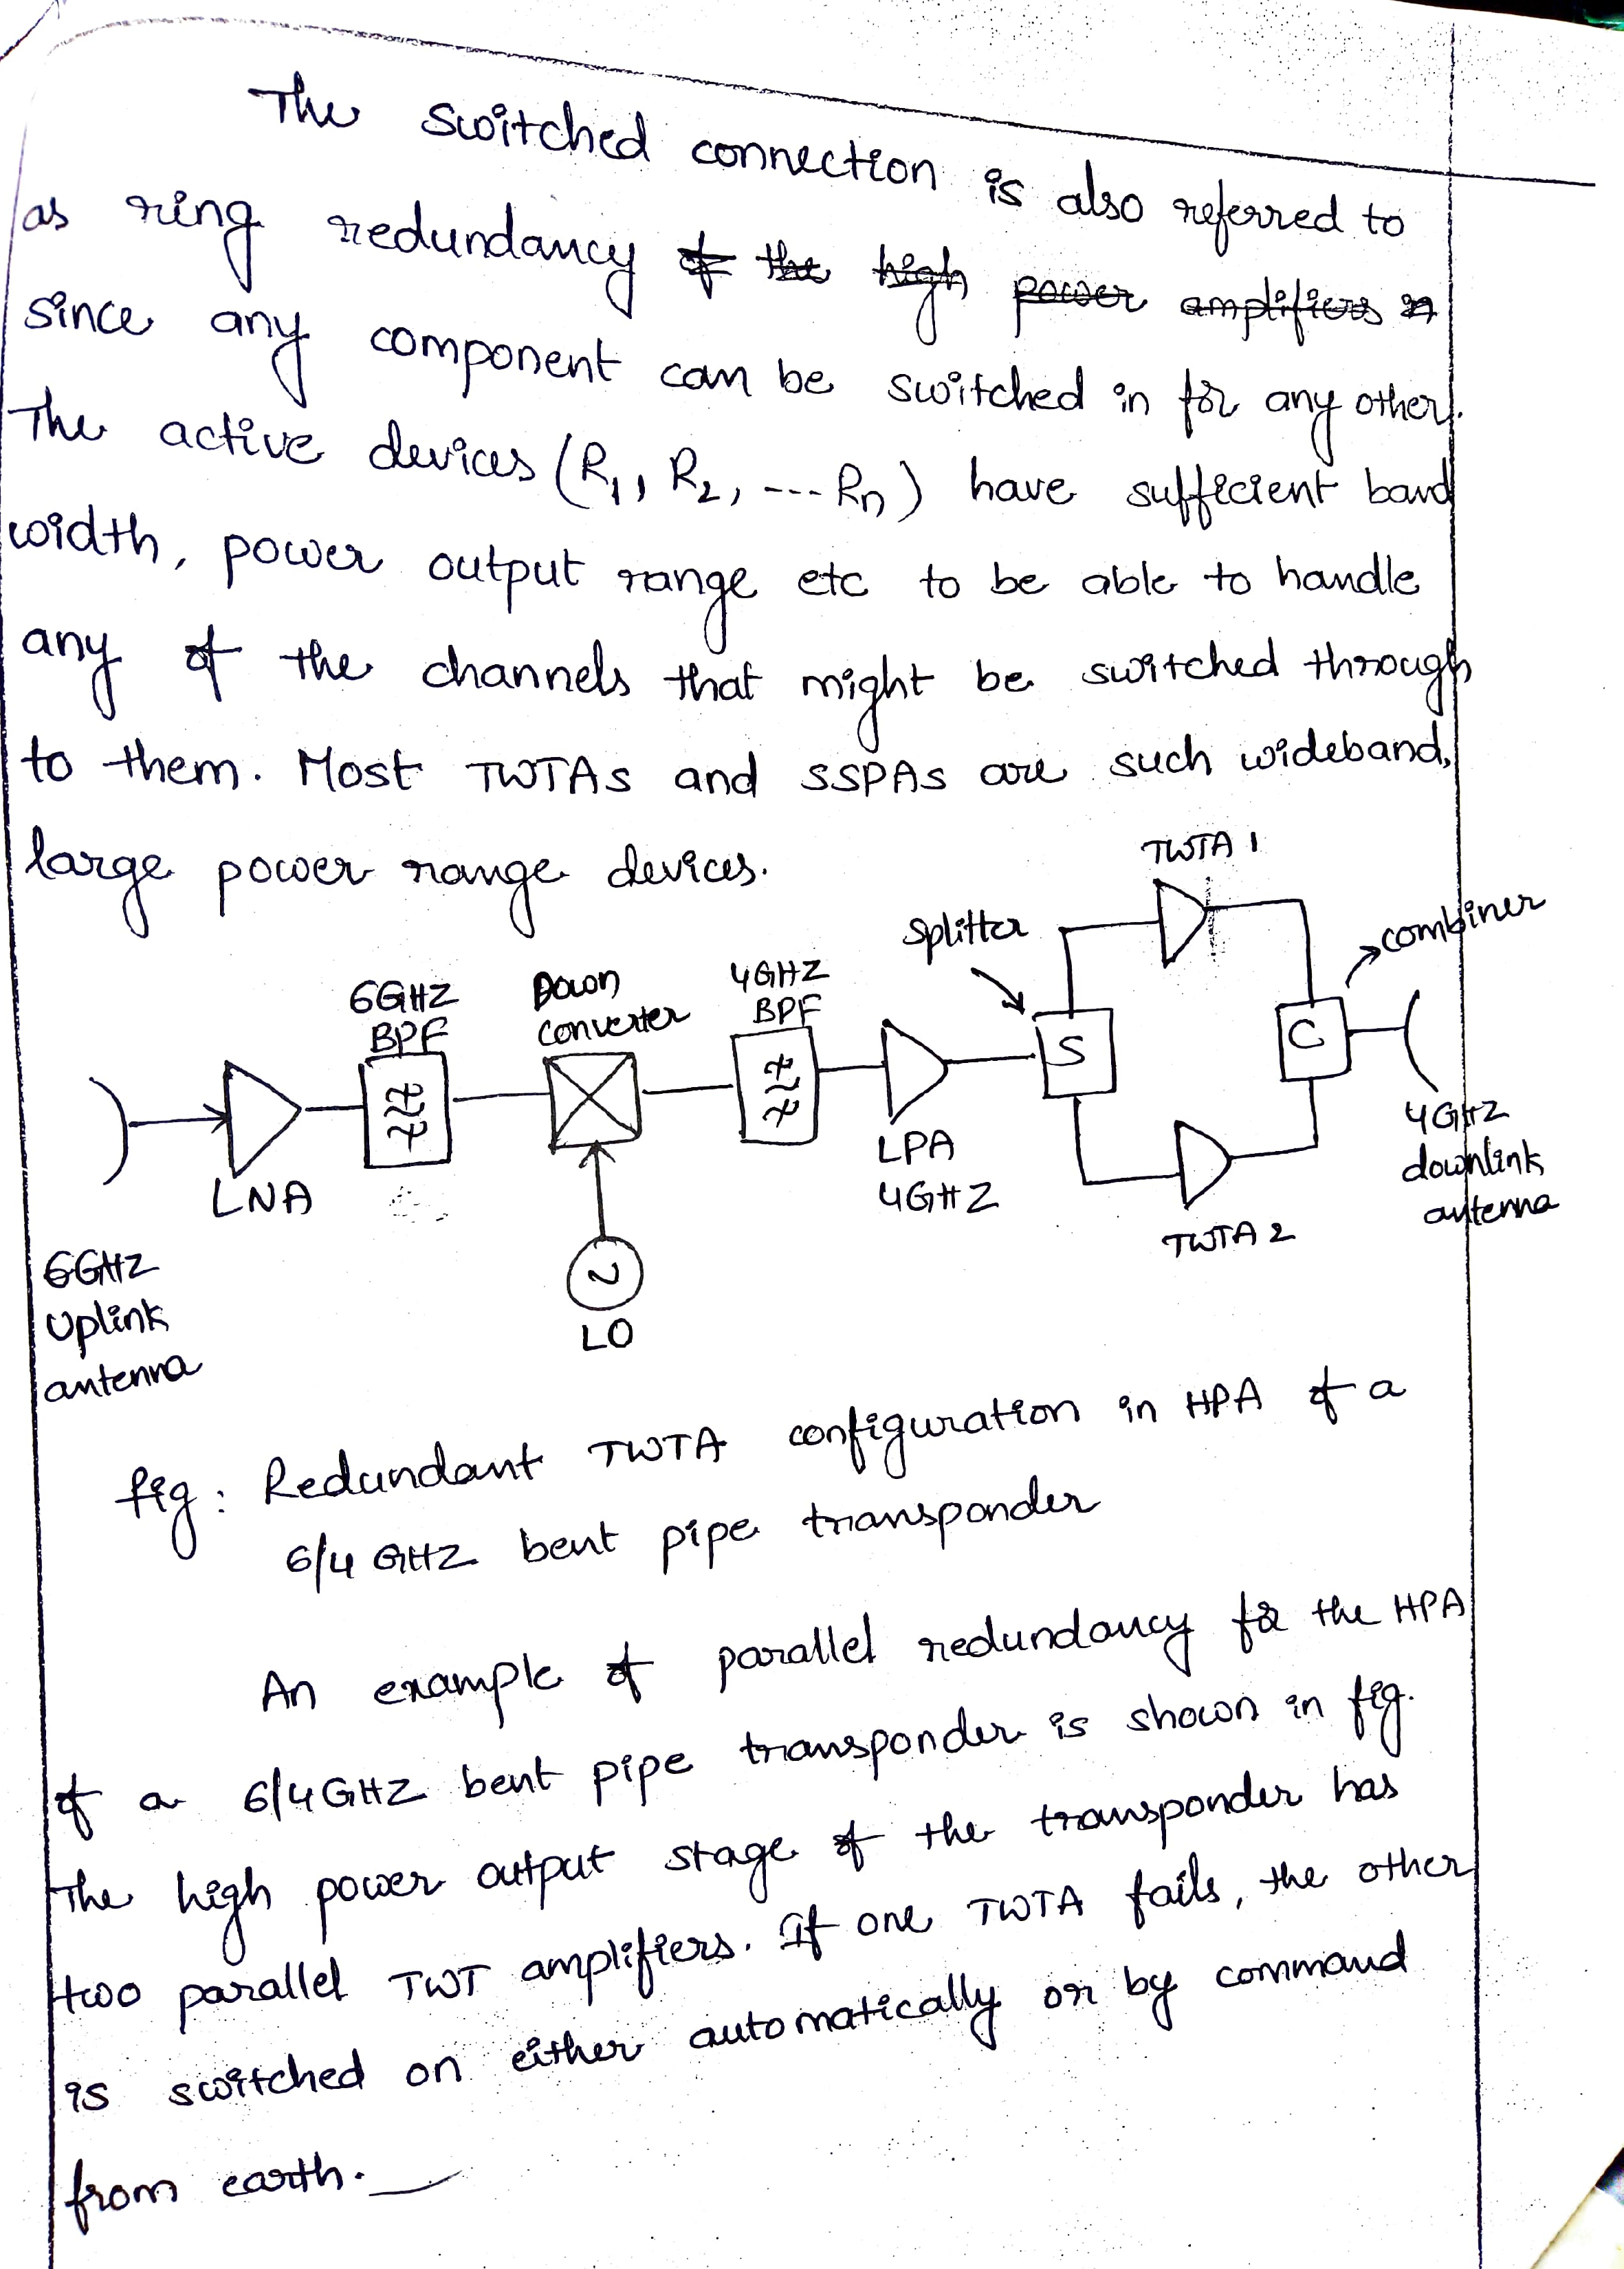 The switched connection is also referred to
as ring redundancy of the high power amplifiers in
since any component can be switched in for any other.
The active devices (R1, R2, ---Rn) have sufficient band
width, power output range etc to be able to handle
any of the channels that might be switched through
to them. Most TWTAs and SSPAs are such wideband,
large power range devices.
TWTA 1
Splitter
combiner
6GHZ
BPF
Down
converter
4GHZ
BPF
S
C
LNA
LPA
4GHZ
TWTA 2
4GHZ
downlink
antenna
6GHZ
Uplink
antenna
LO
fig: Redundant TWTA configuration in HPA of a
6/4 GHZ bent pipe transponder
An example of parallel redundancy for the HPA
of a 6/4GHZ bent pipe transponder is shown in fig.
The high power output stage of the transponder has
two parallel TWT amplifiers. If one TWTA fails, the other
is switched on either automatically or by command
from earth.